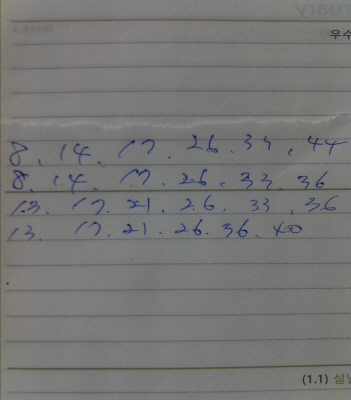 우수
8. 14. 17. 26. 33. 44
8. 14. 17. 26. 33. 36
13. 17. 21. 26. 33. 36
13. 17. 21. 26. 36. 40
(1.1) 설날